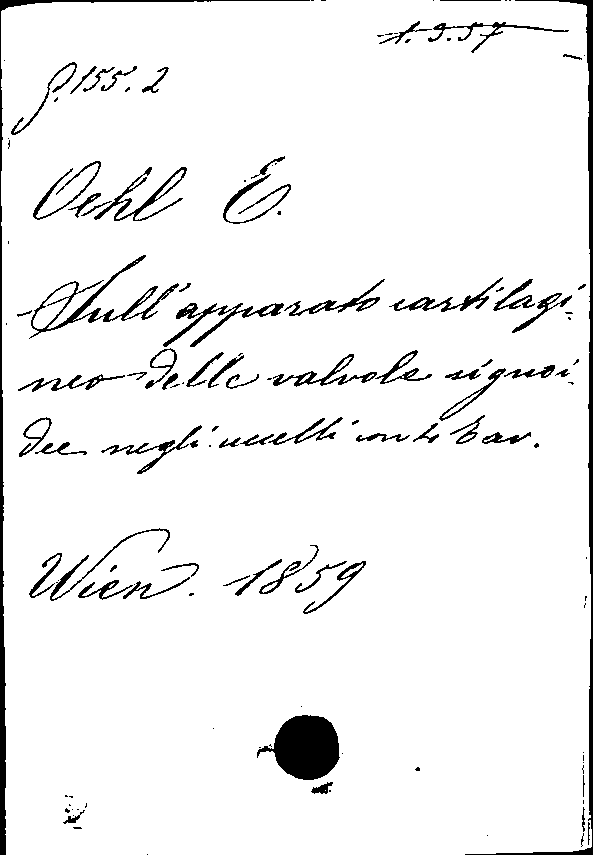 1.9.57
P.155.2
Oehl E.
Sull'apparato cartilagi-
neo delle valvole signoi-
dee negli uccelli con 4 tav.
Wien. 1859